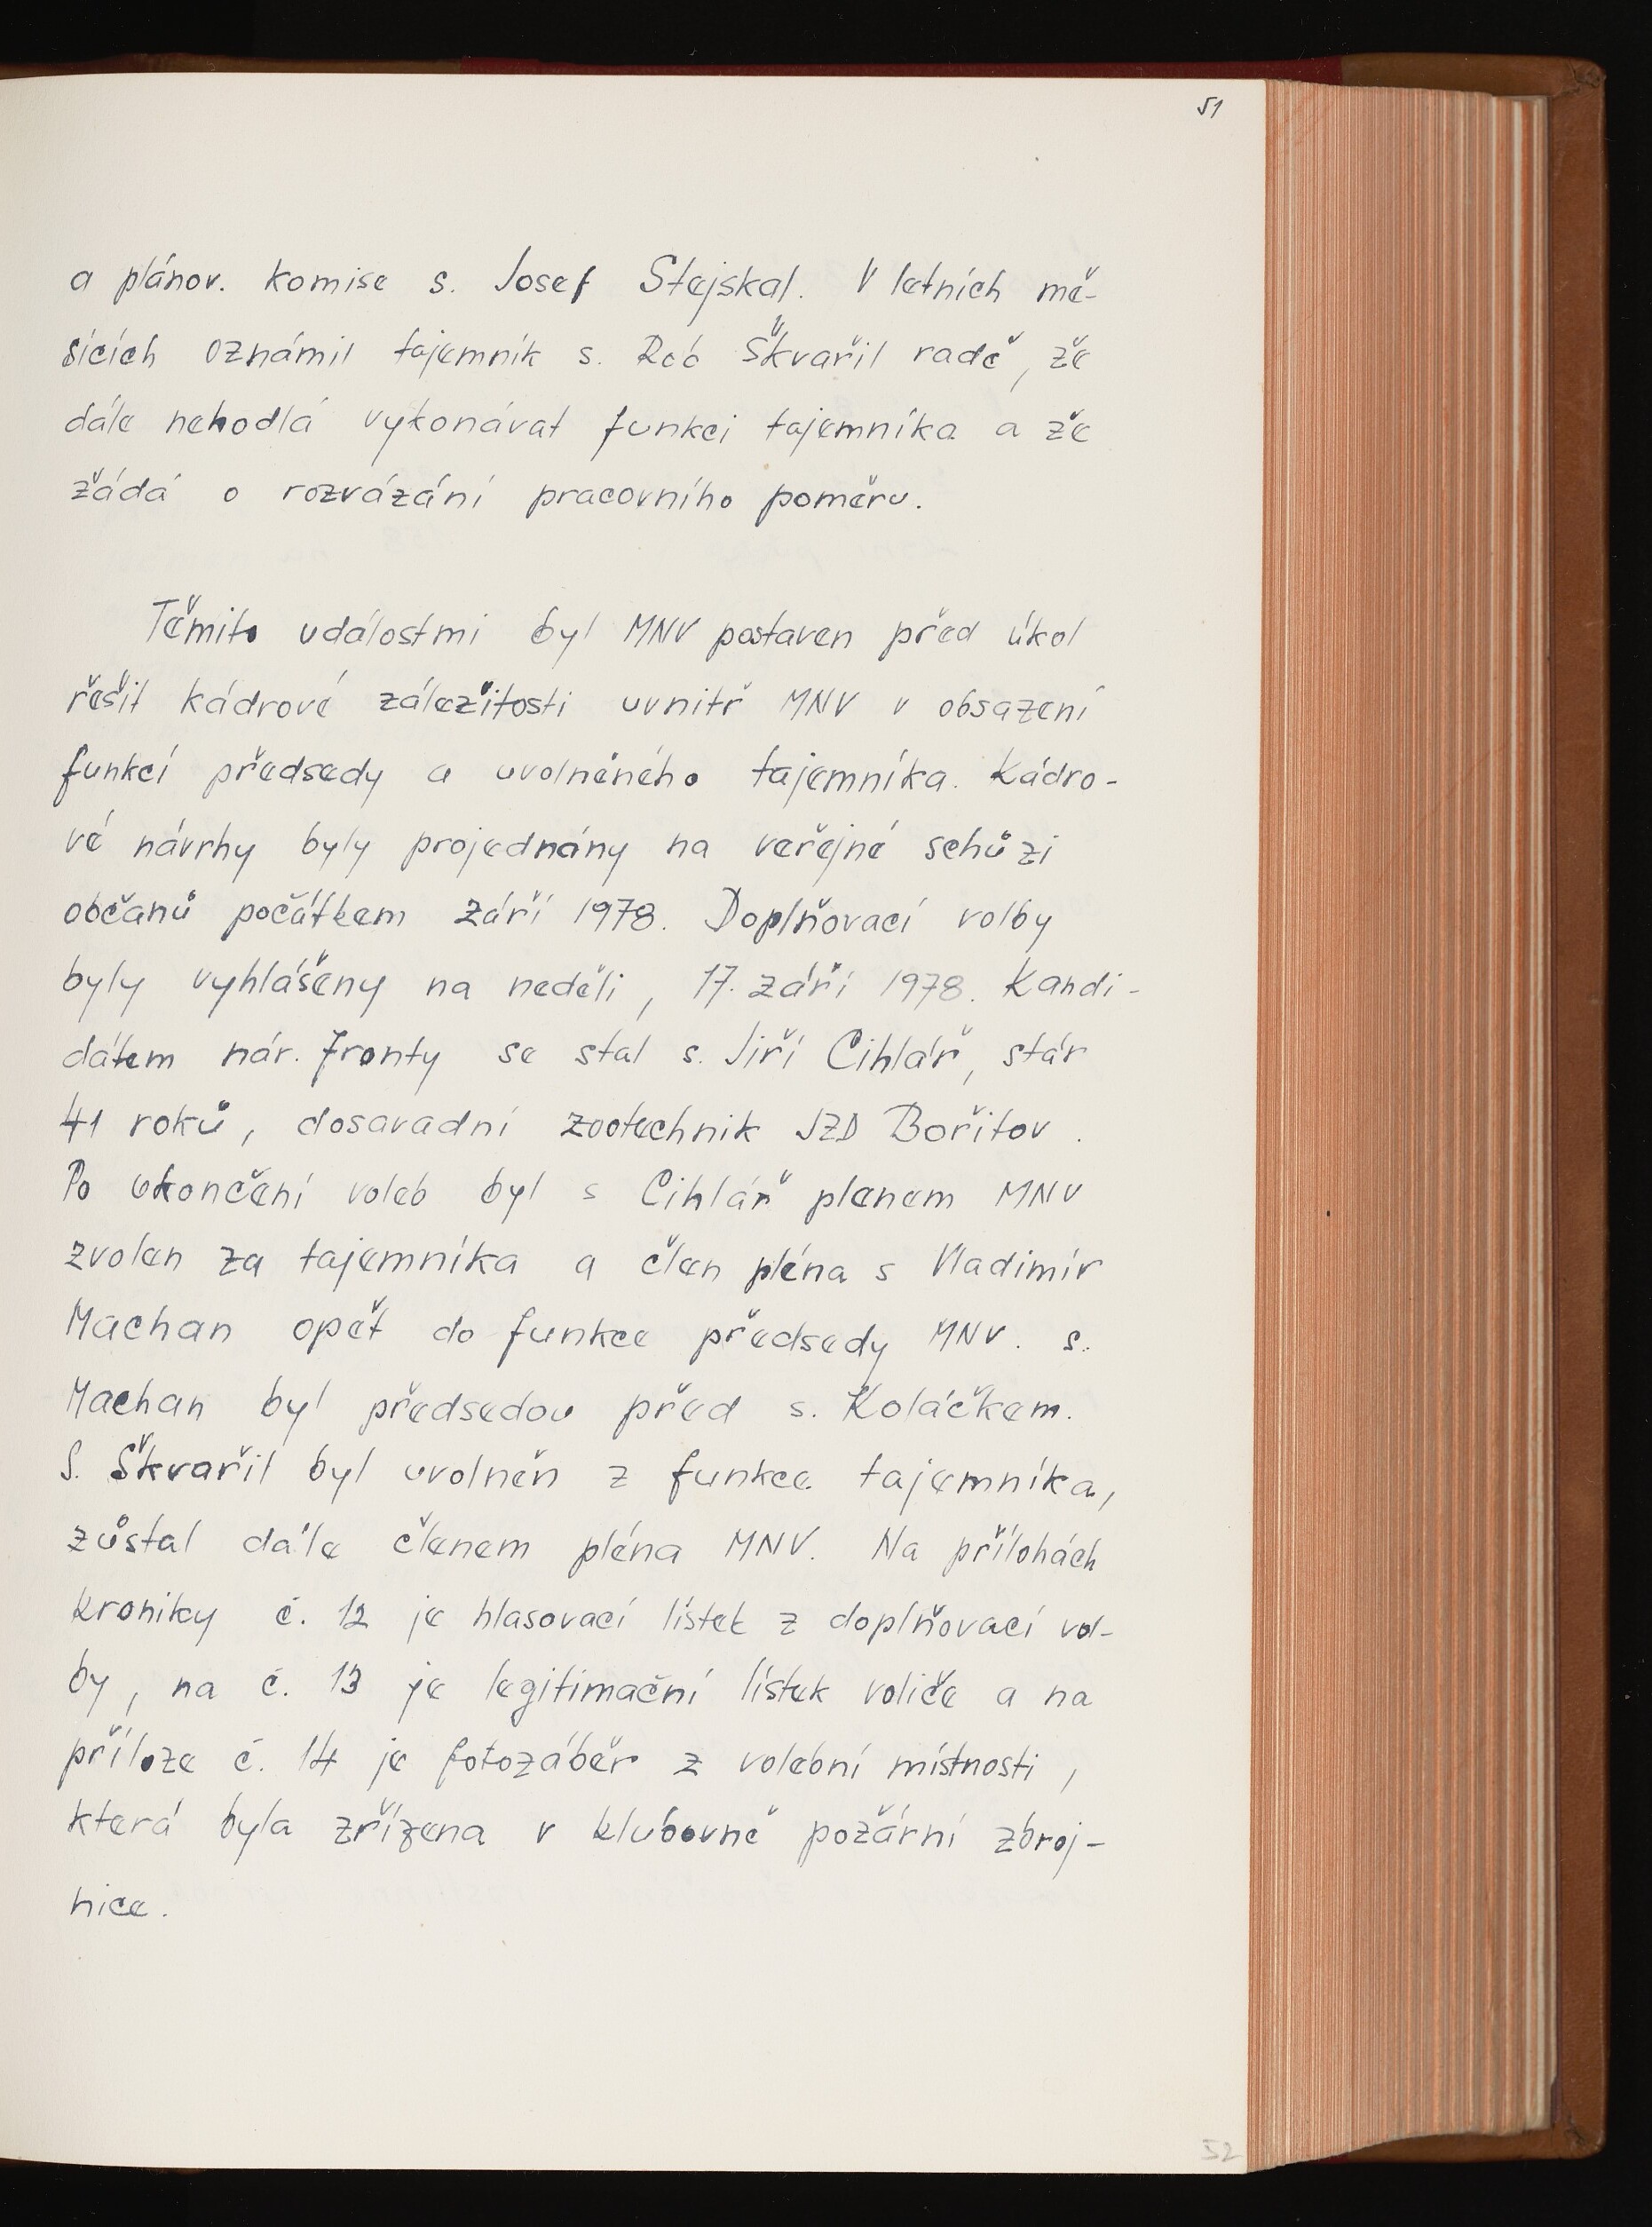 51
a plánov. komise s. Josef Stejskal. V letních mě-
sících oznámil tajemník s. Rob Škvařil radě, že
dále nehodlá vykonávat funkci tajemníka a že
žádá o rozvázání pracovního poměru.
Těmito událostmi byl MNV postaven před úkol
řešit kádrové záležitosti uvnitř MNV v obsazení
funkcí předsedy a uvolněného tajemníka. Kádro-
vé návrhy byly projednány na veřejné schůzi
občanů počátkem září 1978. Doplňovací volby
byly vyhlášeny na neděli, 17. září 1978. Kandi-
dátem nár. fronty se stal s. Jiří Cihlář, stár
41 roků, dosavadní zootechnik JZD Bořitov.
Po ukončení voleb byl s Cihlář plenem MNV
zvolen za tajemníka a člen pléna s Vladimír
Machan opět do funkce předsedy MNV. s.
Machan byl předsedou před s. Koláčkem.
S. Škvařil byl uvolněn z funkce tajemníka,
zůstal dále členem pléna MNV. Na přílohách
kroniky č. 12 je hlasovací lístek z doplňovací vol-
by, na č. 13 je legitimační lístek voliče a na
příloze č. 14 je fotozáběr z volební místnosti,
která byla zřízena v klubovně požární zbroj-
nice.
52